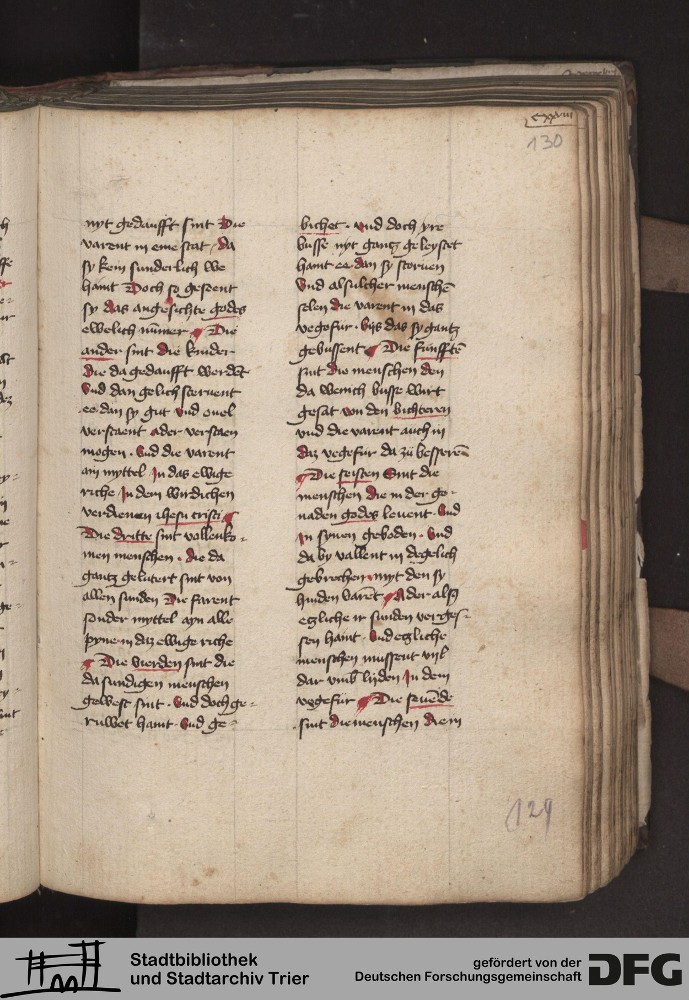 cxxviii
130
nyt gedaufft sint Die
varent in eine stat . da
sy kein sunderlich we
hant Doch so geseent
sy das angesichte godes
ewelich nũmer Die
ander sint die kinder
Die da gedaufft werdẽt
Vnd dan gelich steruent
ee dan sy gut vnd ouel
verstaent ader verstaen
mogen . vnd die varent
ain myttel In das ewige
riche In dem wirdichen
verdienen ihesu cristi
Die dritte sint vollenko=
men menschen . die da
gantz gelutert sint von
allen sunden Die farent
sonder myttel ayn alle
pyne in daz ewige riche
Die vierden sint die
da sundigen menschen
gewest sint . vnd doch ge=
ruwet hant . vnd ge=
bichet . vnd doch yre
busse nyt gantz geleystet
hant ee dan sy storuen
Vnd alsulcher menschẽ
selen die varent in das
vegefur . bijs das sy gantz
gebussent Die funfftẽ
sint die menschen den
da wenich busse wirt
gesat von den bichteren
vnd die varent auch in
daz vegefur da zů besserẽ
Die seisten Sint die
menschen die in der ge=
naden godes leuent . vnd
in synen geboden . vnd
da by vallent in degelich
gebrechen myt den sy
hinden varẽt Ader also
etzliche ir sunden verges=
sen hant . vnd etzliche
menschen mussent vijl
dar vmb lijden In dem
vegefur Die seuẽde
sint die menschen die in
129
Stadtbibliothek
und Stadtarchiv Trier
gefördert von der
Deutschen Forschungsgemeinschaft
DFG